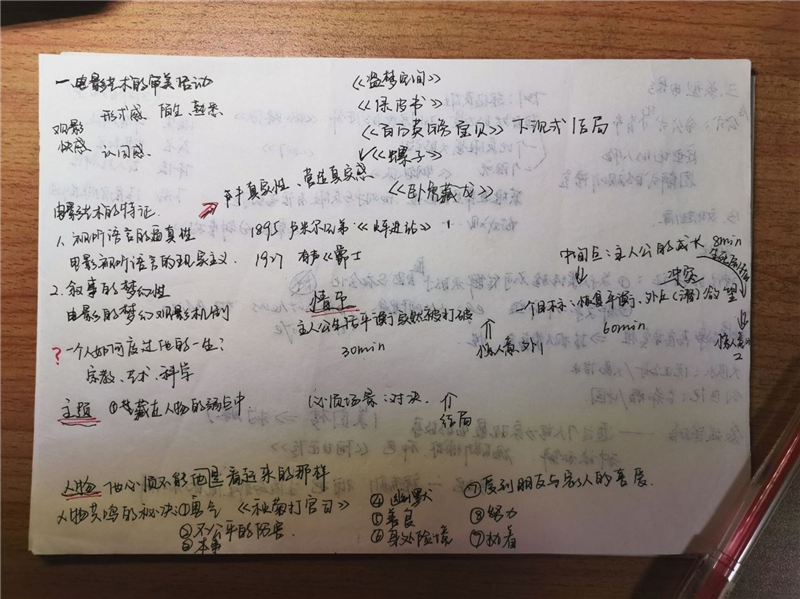 一、电影艺术的审美活动
观影快感
形式感 陌生、熟悉
认同感
《盗梦空间》
《绿皮书》
《百万英镑宝贝》下沉式结局
《螺子》
《卧虎藏龙》
声半真实性、营造真实感
电影艺术的特征
1、视听语言的逼真性 1895 卢米尔兄弟《火车进站》
电影视听语言的现实主义 1927 有声《爵士
2、叙事的梦幻性
电影的梦幻观影机制
情节
主人公生活平衡突然被打破
30min
意外1
中间段:主人公的成长
冲突
一个目标:恢复平衡、外在(潜)欲望
60min
8min
2
? 一个人如何度过他的一生?
宗教、艺术、科学
主题 ①蕴藏在人物的缺点中
必须场景:对决
结局
人物 他必须不能像看起来的那样
人物共鸣的秘决:①勇气 《秋菊打官司》
②不公平的伤害
③本事
④幽默
⑤善良
⑥身处险境
⑦受到朋友与家人的喜爱
⑧努力
⑦执着